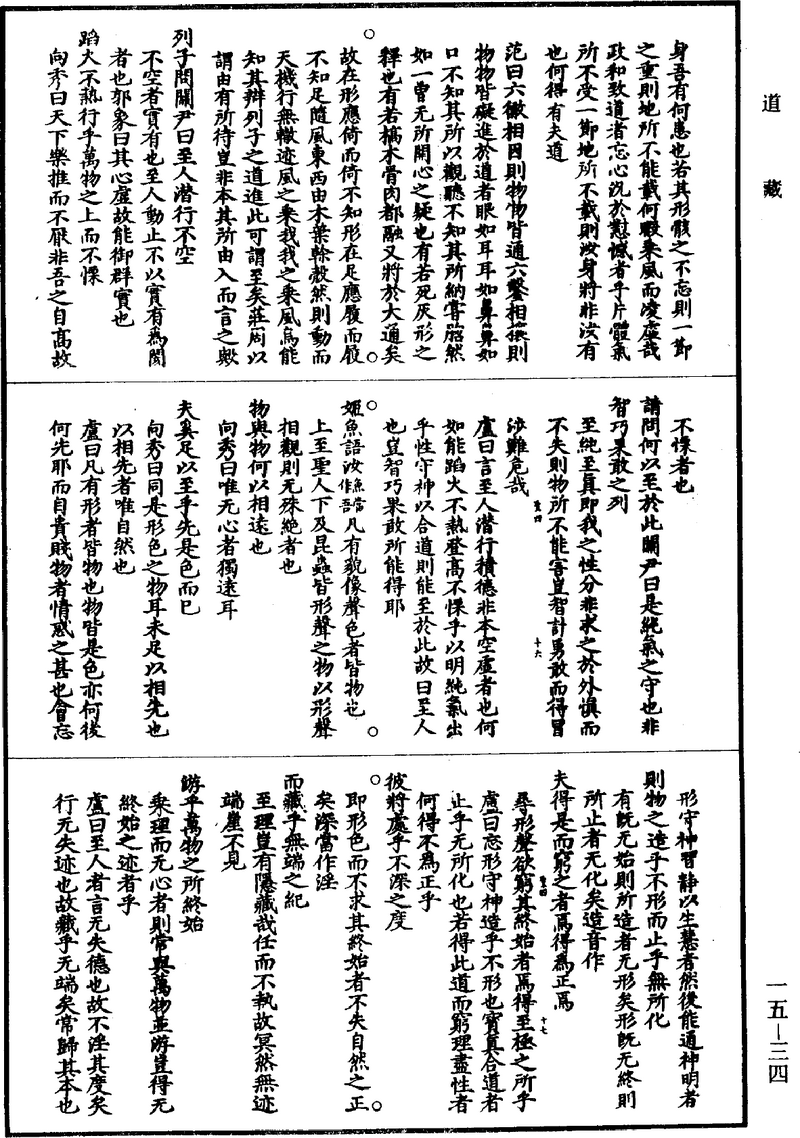 道藏
身吾有何患也若其形骸之不忘則一節
之重則地所不能載何暇乘風而凌虛哉
政和致道者忘心沉於懟憾者乎片體氣
所不受一節地所不載則汝身將非汝有
也何得有夫道
范曰六徹相因則物物皆通六鑿相攘則
物物皆礙進於道者眼如耳耳如鼻鼻如
口不知其所以觀聽不知其所納嘗脗然
如一曾无所開心之疑也有若死灰形之
釋也有若槁木骨肉都融又將於大通矣
故在形應倚而倚不知形在足應履而履
不知足隨風東西由木葉幹殼然則動而
天機行無轍迹風之乘我我之乘風烏能
知其辨列子之道進此可謂至矣莊周以
謂由有所待豈非本其所由入而言之歟
列子問關尹曰至人潛行不空
不空者實有也至人動止不以實有為閡
者也郭象曰其心虛故能御群實也
蹈火不熱行乎萬物之上而不慄
向秀曰天下樂推而不厭非吾之自高故
不慄者也
請問何以至於此關尹曰是純氣之守也非
智巧果敢之列
至純至真即我之性分非求之於外慎而
不失則物所不能害豈智計勇敢而得冒
涉難危哉
盧曰言至人潛行積德非本空虛者也何
如能蹈火不熱登高不慄乎以明純氣出
乎性守神以合道則能至於此故曰至人
也豈智巧果敢所能得耶
姬魚語汝魚當作吾凡有貌像聲色者皆物也
上至聖人下及昆蟲皆形聲之物以形聲
相觀則无殊絶者也
物與物何以相遠也
向秀曰唯无心者獨遠耳
夫奚足以至乎先是色而已
向秀曰同是形色之物耳未足以相先也
以相先者唯自然也
盧曰凡有形者皆物也物皆是色亦何後
何先耶而自貴賤物者情惑之甚也會忘
形守神習静以生慧者然後能通神明者
則物之造乎不形而止乎無所化
有既无始則所造者无形矣形既无終則
所止者无化矣造音作
夫得是而窮之者焉得為正焉
尋形聲欲窮其終始者焉得至極之所乎
盧曰忘形守神造乎不形也寳真合道者
止乎无所化也若得此道而窮理盡性者
何得不為正乎
彼將處乎不深之度
即形色而不求其終始者不失自然之正
矣深當作淫
而藏乎無端之紀
至理豈有隱藏哉任而不執故冥然無迹
端崖不見
游乎萬物之所終始
乘理而无心者則常與萬物並游豈得无
終始之迹者乎
盧曰至人者言无失德也故不淫其度矣
行无失迹也故藏乎无端矣常歸其本也
一五—三四